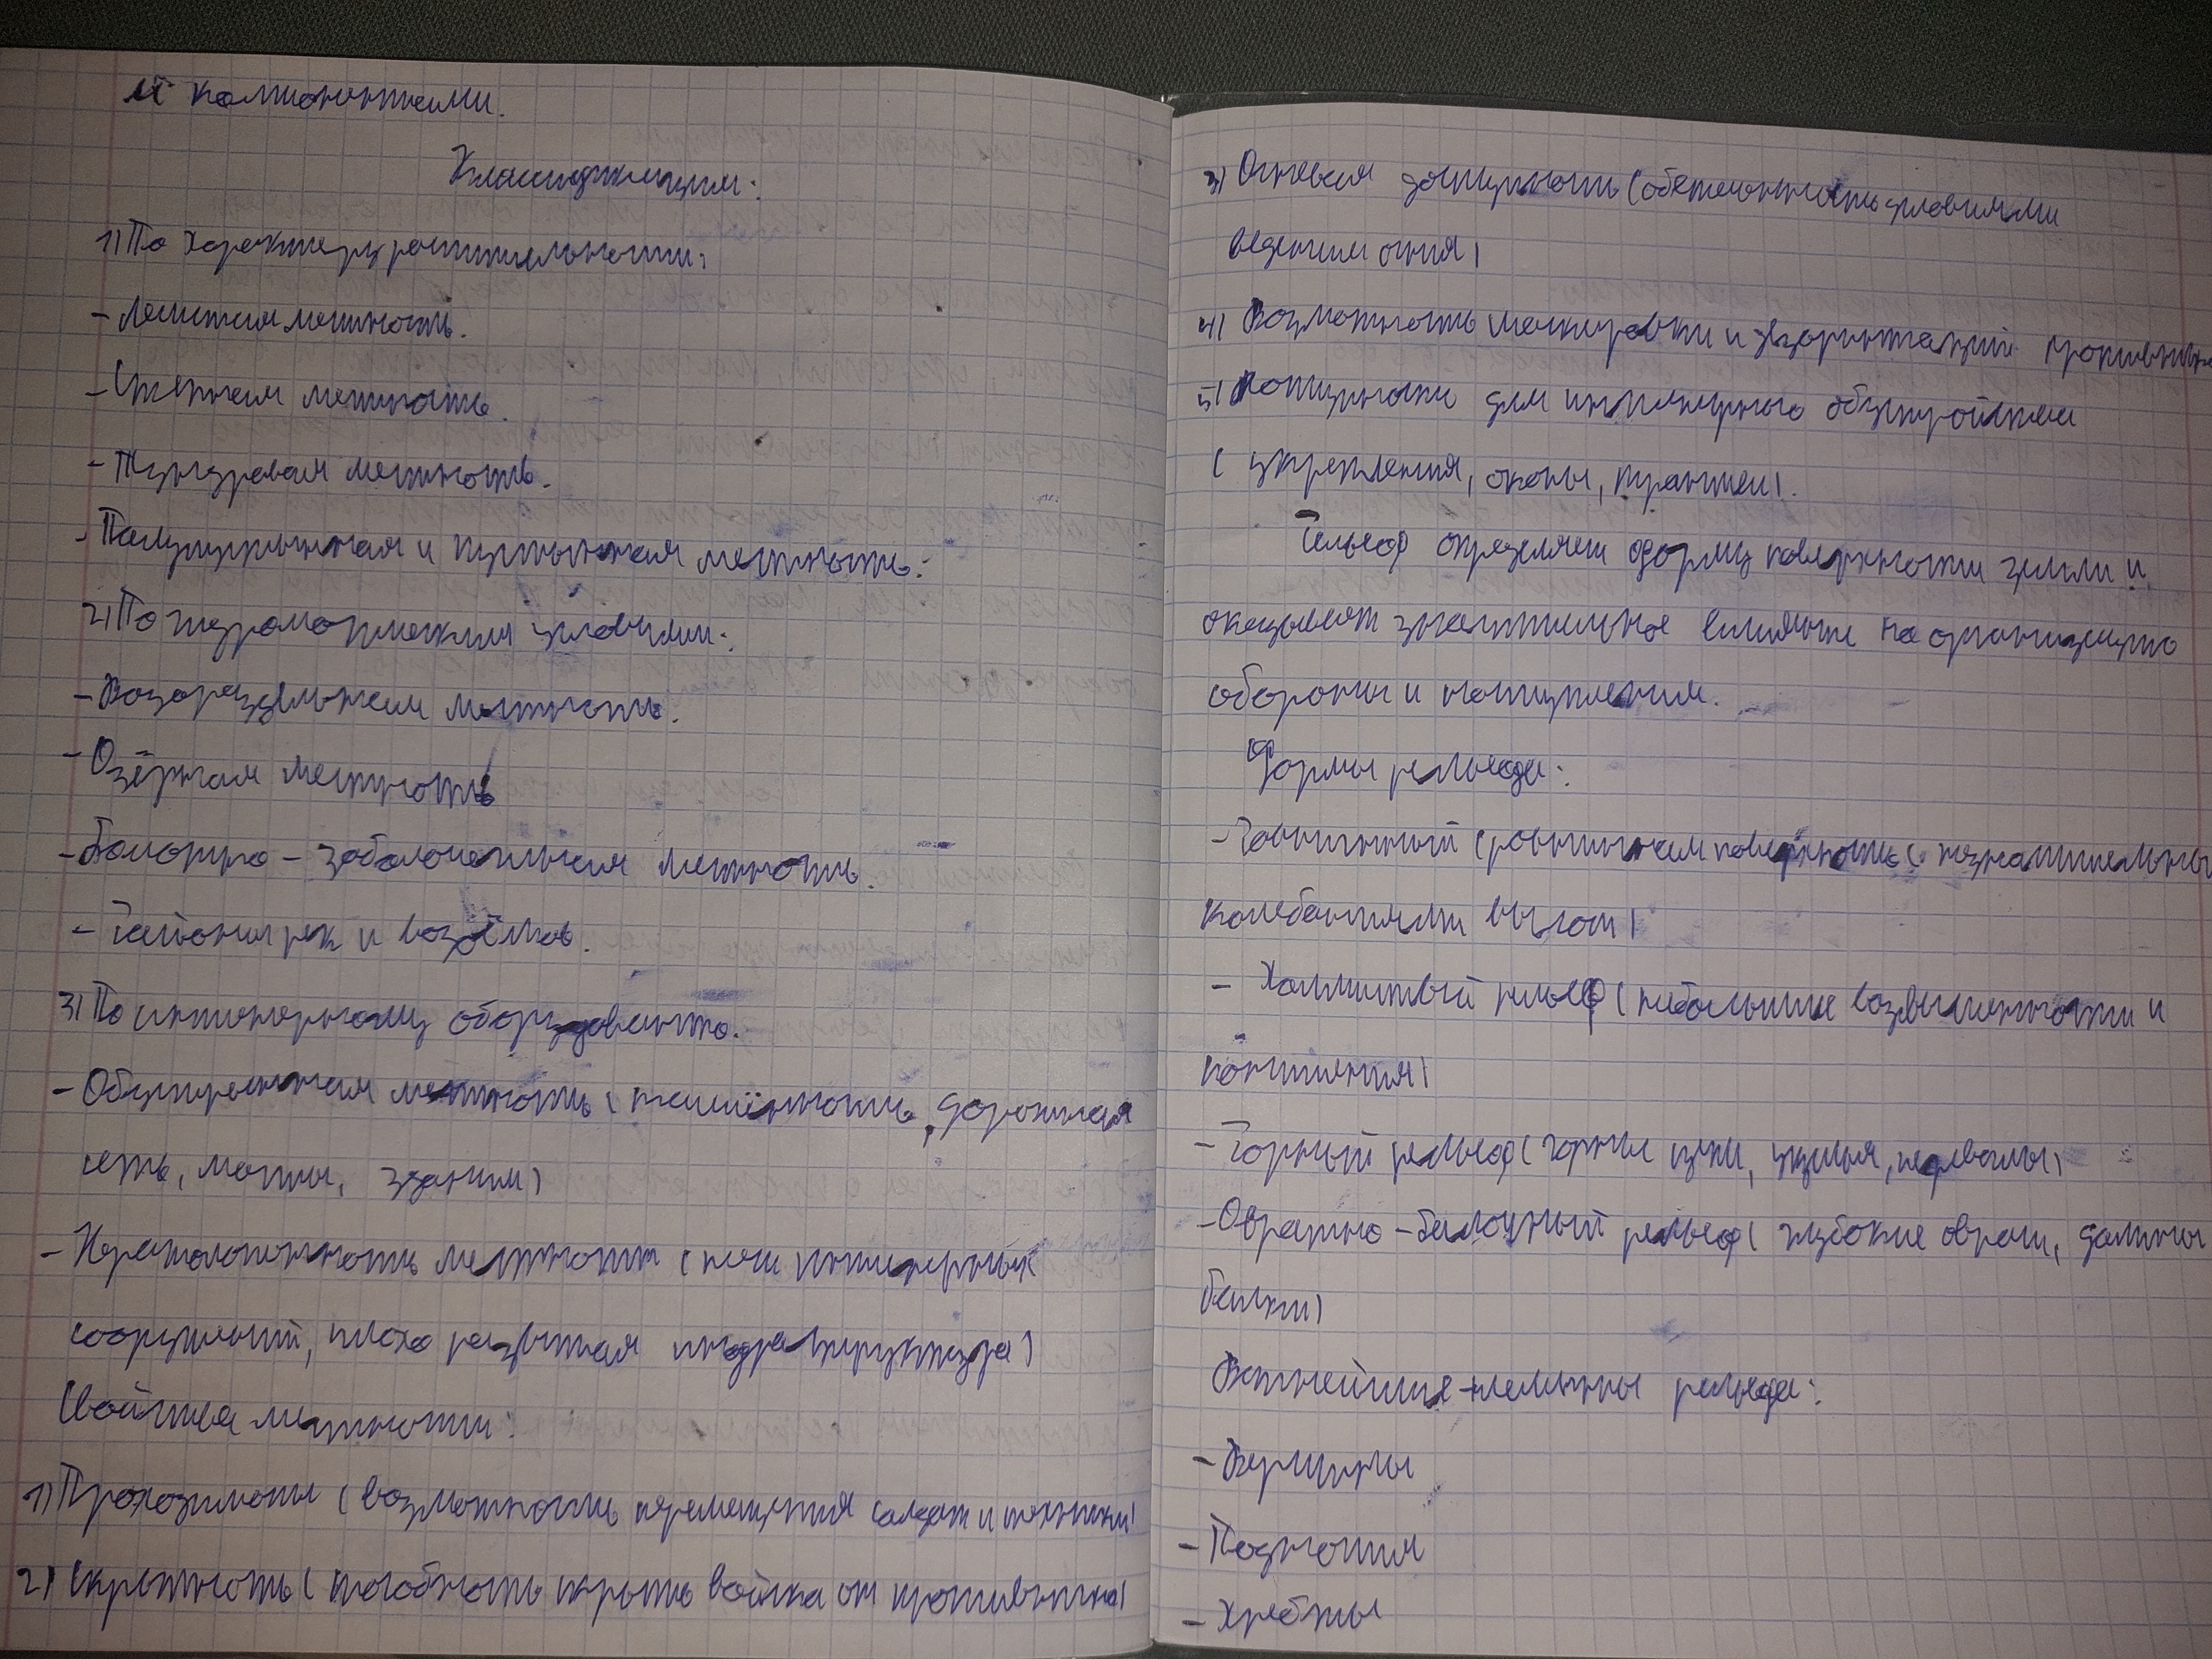 её компонентами.
Классификация:
1) По характеру растительности:
- Лесистая местность.
- Степная местность.
- Тундровая местность.
- Полупустынная и пустынная местность.
2) По гидрологическим условиям:
- Водораздельная местность.
- Озёрная местность
- Болотно - заболоченная местность.
- Районы рек и водоёмов.
3) По инженерному оборудованию.
- Обустроенная местность (населённость, дорожная
сеть, мосты, здания)
- Нерасположенность местности (нет инженерных
сооружений, плохо развитая инфраструктура)
Свойства местности:
1) Проходимость (возможность перемещения солдат и техники)
2) Скрытность (способность скрыть войска от противника)
3) Огневая доступность (обеспеченность условиями
ведения огня)
4) Возможность маскировки и дезориентаций противника
5) Доступности для инженерного обустройства
(укрепления, окопы, траншеи).
Рельеф определяет форму поверхности земли и
оказывает значительное влияние на организацию
обороны и наступления.
Формы рельефа:
- Равнинный (равнинная поверхность с незначительными
колебаниями высот)
- Холмистый рельеф (небольшие возвышенности и
понижения)
- Горный рельеф (горные пики, ущелья, перевалы)
- Овражно - балочный рельеф (глубокие овраги, долины
балки)
Важнейшие элементы рельефа:
- Вершины
- Подножия
- Хребты